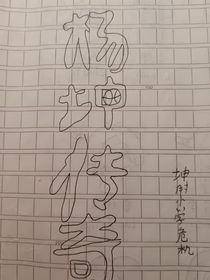 杨坤传奇
坤小学危机